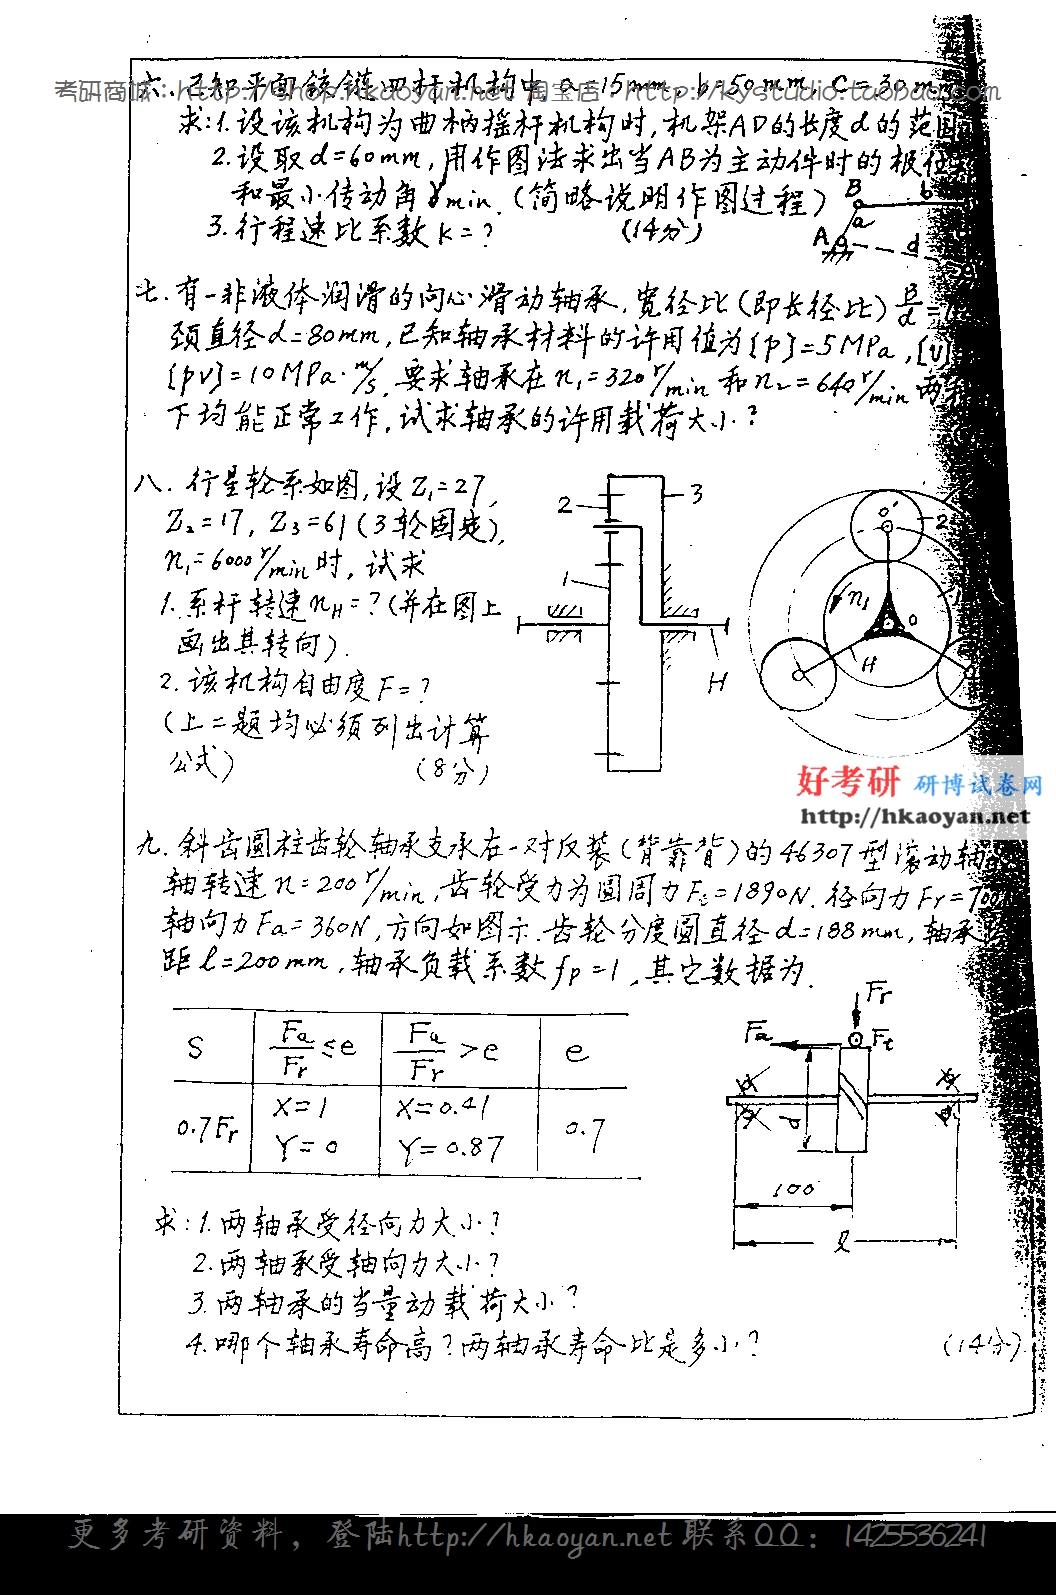 考研商城：http://shop.hkaoyan.net 淘宝店：http://kystudio.taobao.com
六.已知平面铰链四杆机构中 a=15mm, b=50mm, c=30m
求:1.设该机构为曲柄摇杆机构时,机架AD的长度d的范围
2.设取d=60mm,用作图法求出当AB为主动件时的极位
和最小传动角γmin.(简略说明作图过程)
3.行程速比系数K=? (14分)
B b
a
A d
七.有一非液体润滑的向心滑动轴承.宽径比(即长径比) B/d=
颈直径d=80mm,已知轴承材料的许用值为[p]=5MPa,[V]
[pv]=10MPa·m/s.要求轴承在n₁=320r/min和n₂=640r/min两
下均能正常工作,试求轴承的许用载荷大小?
八.行星轮系如图,设Z₁=27,
Z₂=17, Z₃=61(3轮固定),
n₁=6000r/min时,试求
1.系杆转速nH=?(并在图上
画出其转向).
2.该机构自由度F=?
(上二题均必须列出计算
公式) (8分)
2 3
1
H
O' 2
n₁ 1
O
H
好考研 研博试卷网
http://hkaoyan.net
九.斜齿圆柱齿轮轴承支承在一对反装(背靠背)的46307型滚动轴
轴转速n=200r/min,齿轮受力为圆周力Ft=1890N.径向力Fr=700
轴向力Fa=360N,方向如图示.齿轮分度圆直径d=188mm,轴承
距l=200mm,轴承负载系数fp=1,其它数据为.
S Fa/Fr≤e Fa/Fr>e e
0.7Fr X=1 X=0.41 0.7
Y=0 Y=0.87
Fr
Fa Ft
d
100
l
求:1.两轴承受径向力大小?
2.两轴承受轴向力大小?
3.两轴承的当量动载荷大小?
4.哪个轴承寿命高?两轴承寿命比是多少? (14分)
更多考研资料，登陆http://hkaoyan.net 联系QQ：1425536241